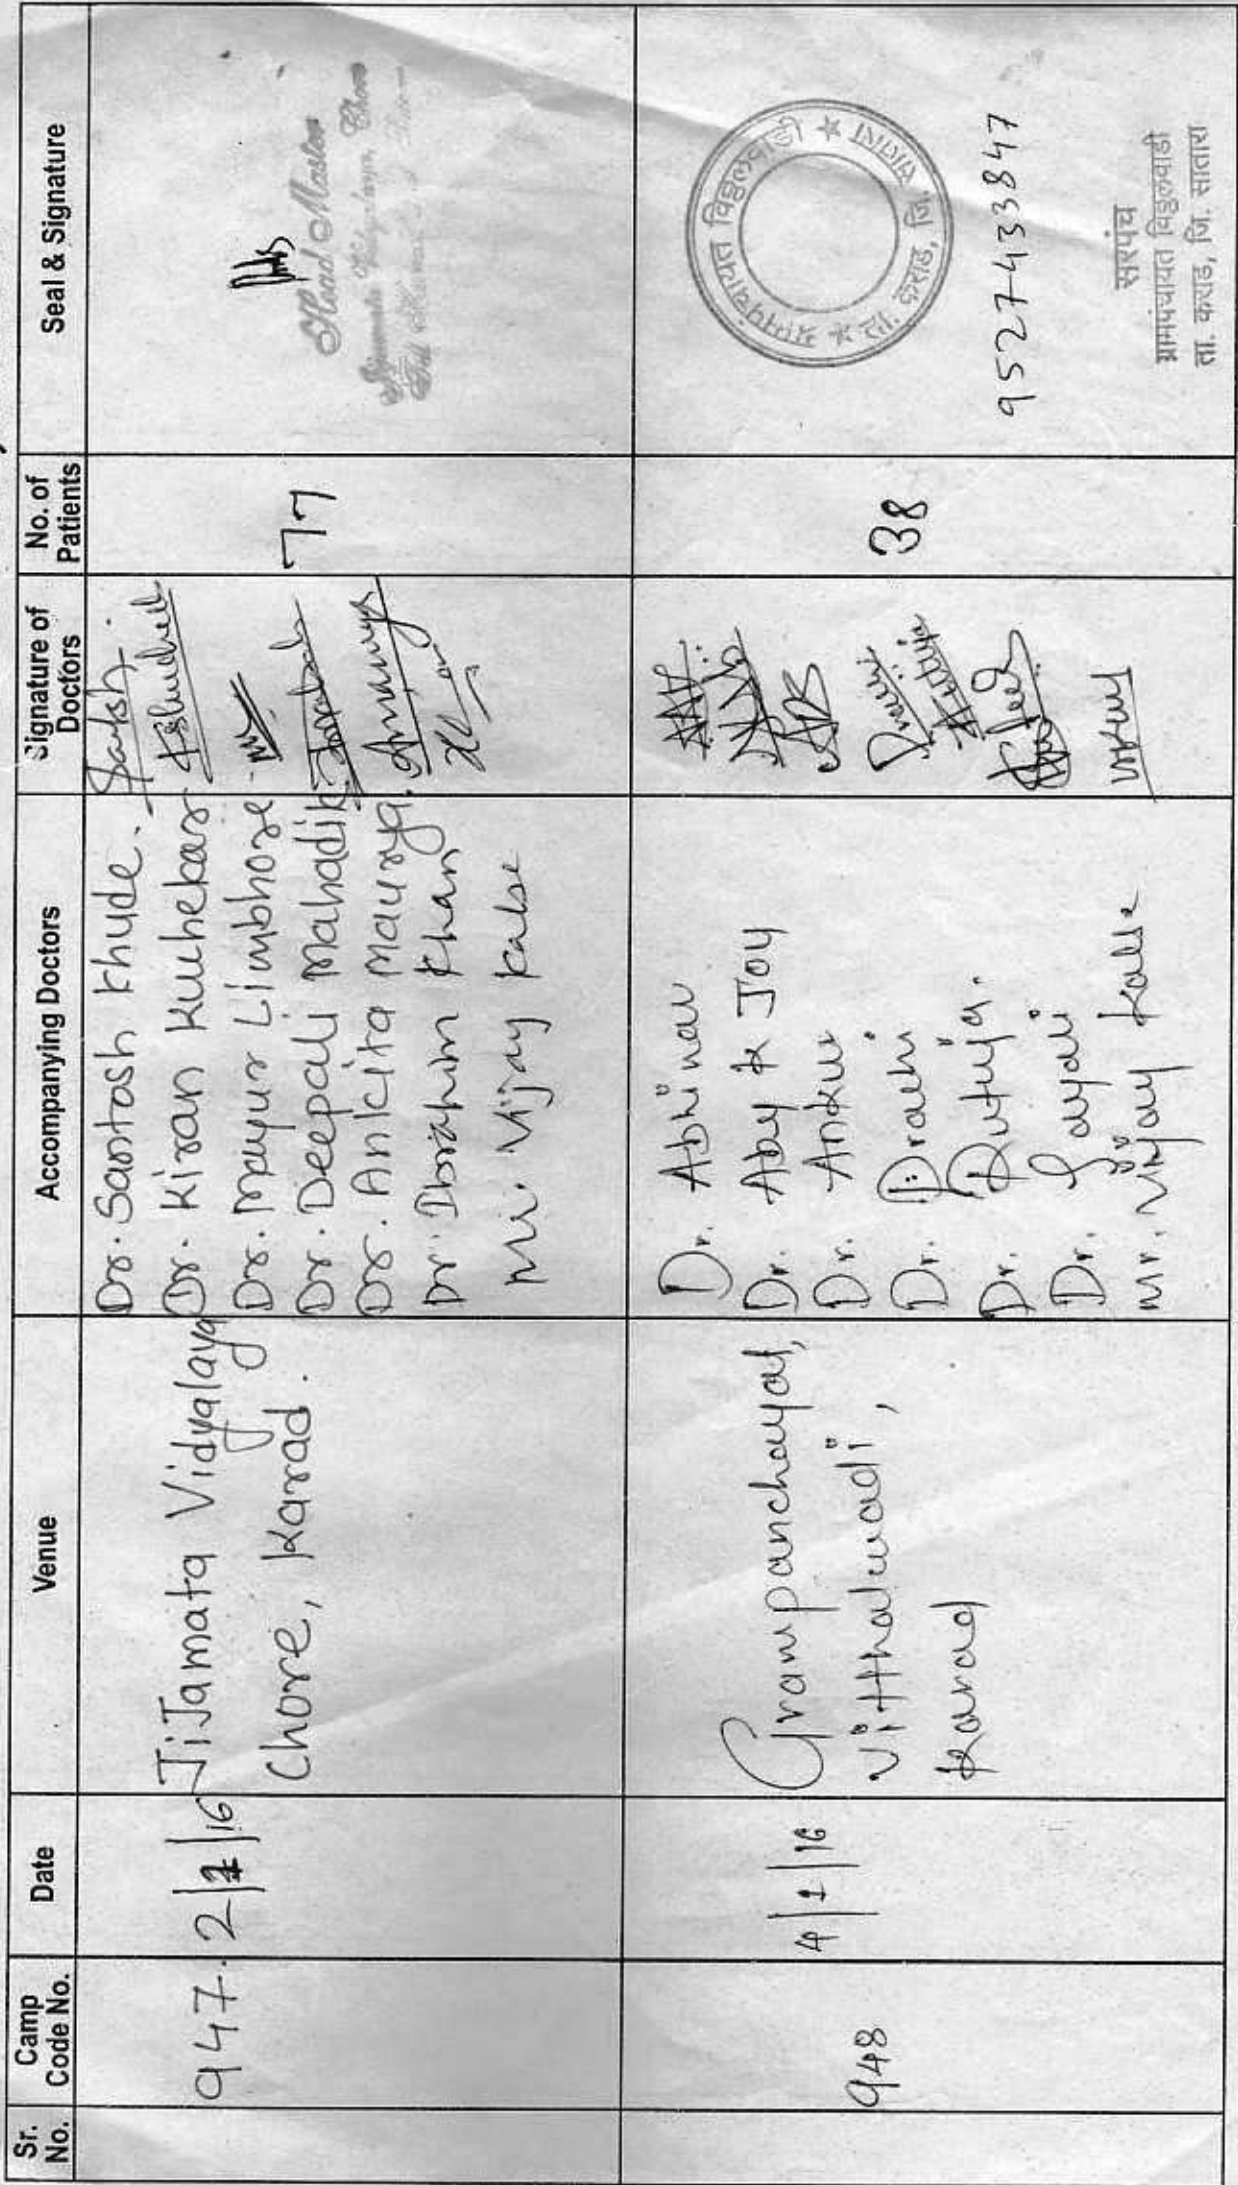 Sr. No.
Camp Code No.
Date
Venue
Accompanying Doctors
Signature of Doctors
No. of Patients
Seal & Signature
947.
2/1/16
JiJamata Vidyalaya
Chore, Karad.
Dr. Santosh Khude.
Dr. Kiran Kumhekar
Dr. Mayur Limbhore
Dr. Deepali Mahadik
Dr. Ankita Maurya.
Dr. Ibrahim Khan
Mr. Vijay Kalse
77
Head Master
948
4/1/16
Grampanchayat,
Vitthalwadi,
Karad
Dr. Abhinav
Dr. Aby K Joy
Dr. Ankur
Dr. Prachi
Dr. Rutuja.
Dr. Sayali
Mr. Vijay Kalse
38
ग्रामपंचायत विठ्ठलवाडी ★ INDIA
★ ता. कराड, जि.
9527433847
सरपंच
ग्रामपंचायत विठ्ठलवाडी
ता. कराड, जि. सातारा